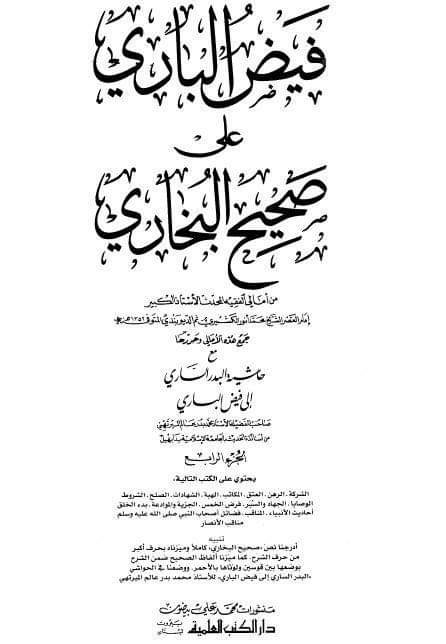 فيض الباري
على
صحيح البخاري
من أمالي الفقيه المحدث الأستاذ الكبير
إمام العصر الشيخ محمد أنور الكشميري ثم الديوبندي المتوفى ١٣٥٢ هـ
جمع هذه الأمالي وحررها
مع
حاشية البدر الساري
إلى فيض الباري
صاحب الفضيلة الأستاذ محمد بدر عالم الميرتهي
من أساتذة الحديث بالجامعة الإسلامية بدابهيل
الجزء الرابع
يحتوي على الكتب التالية:
الشركة، الرهن، العتق، المكاتب، الهبة، الشهادات، الصلح، الشروط
الوصايا، الجهاد والسير، فرض الخمس، الجزية والموادعة، بدء الخلق
أحاديث الأنبياء، المناقب، فضائل أصحاب النبي صلى الله عليه وسلم
مناقب الأنصار
تنبيه
أدرجنا نص «صحيح البخاري» كاملاً وميزناه بحرف أكبر
من حرف الشرح. كما ميزنا ألفاظ الصحيح ضمن الشرح
بوضعها بين قوسين ولوناها بالأحمر. ووضعنا في الحواشي
«البدر الساري إلى فيض الباري» للأستاذ محمد بدر عالم الميرتهي
منشورات محمد علي بيضون
دار الكتب العلمية
بيروت لبنان